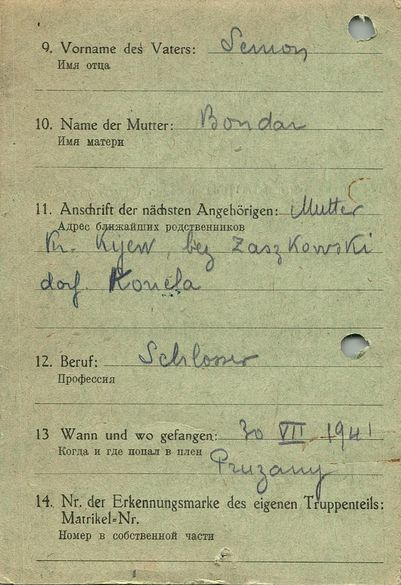 9. Vorname des Vaters: Semon
Имя отца
10. Name der Mutter: Bondar
Имя матери
11. Anschrift der nächsten Angehörigen: Mutter
Адрес ближайших родственников
Kr. Kyew, bez Zaszkowski
dorf. Konela
12. Beruf: Schlosser
Профессия
13 Wann und wo gefangen: 30 VII 1941
Когда и где попал в плен
Pruzany
14. Nr. der Erkennungsmarke des eigenen Truppenteils:
Matrikel-Nr.
Номер в собственной части